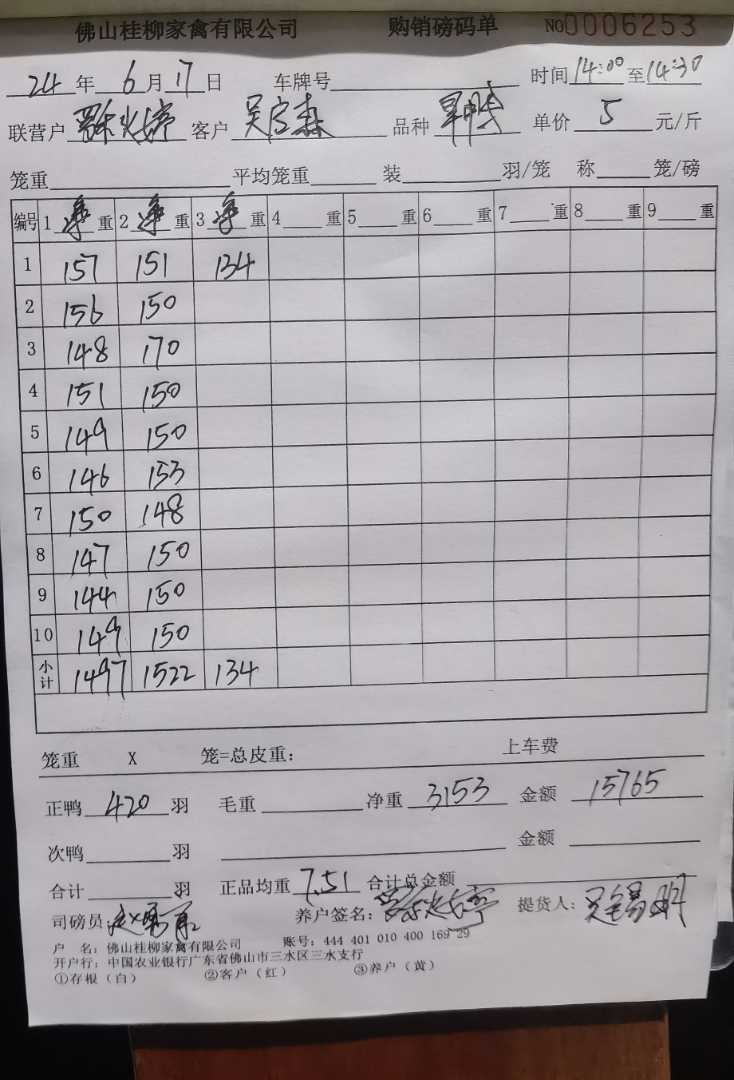 佛山桂柳家禽有限公司 购销磅码单 NO0006253
24年6月17日 车牌号 时间14:00至14:30
联营户 客户 品种 单价5元/斤
笼重 平均笼重 装 羽/笼 称 笼/磅
编号 1净重 2净重 3净重 4重 5重 6重 7重 8重 9重
1 157 151 134
2 156 150
3 148 170
4 151 150
5 149 150
6 146 153
7 150 148
8 147 150
9 144 150
10 149 150
小计 1497 1522 134
笼重 X 笼=总皮重: 上车费
正鸭420羽 毛重 净重3153 金额15765
次鸭 羽 金额
合计 羽 正品均重7.51 合计总金额
司磅员 养户签名: 提货人:吴锡明
户 名:佛山桂柳家禽有限公司 账号:444 401 010 400 169 29
开户行:中国农业银行广东省佛山市三水区三水支行
①存根(白) ②客户(红) ③养户(黄)